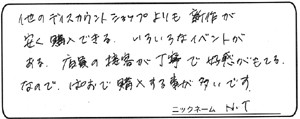 他のディスカウントショップよりも 新作が
安く購入できる. いろいろなイベントが
ある. 店員の接客が丁寧で好感がもてる.
なので、ぱおで購入する事が多いです.
ニックネーム N.T